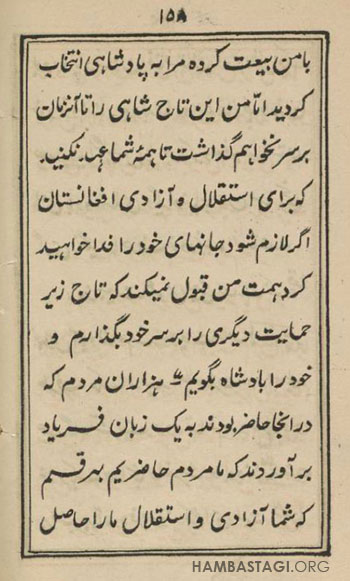 ۱۵۸
بامن بیعت کرده مرا به پادشاهی انتخاب
کردید امّا من این تاج شاهی را تا آنزمان
برسر نخواهم گذاشت تا همهٔ شما عهد نکنید
که برای استقلال و آزادی افغانستان
اگر لازم شود جانهای خود را فدا خواهید
کرد همت من قبول نمیکند که تاج زیر
حمایت دیگری را بر سر خود بگذارم و
خود را پادشاه بگویم هزاران مردم که
در انجا حاضر بودند به یک زبان فریاد
برآوردند که ما مردم حاضریم بهر قسم
که شما آزادی و استقلال ما را حاصل
HAMBASTAGI.ORG